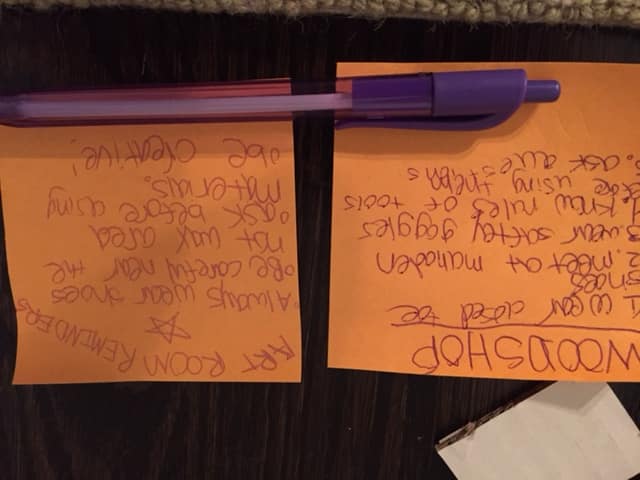 WOODSHOP
1 wear closed toe
shoes
2. meet at
3. wear saftey goggles
4. know rules of tools
using them
ask
ART ROOM REMINDERS
• Always wear shoes
• Be careful near the
hot wax area
• ask before using
materials.
• be creative!